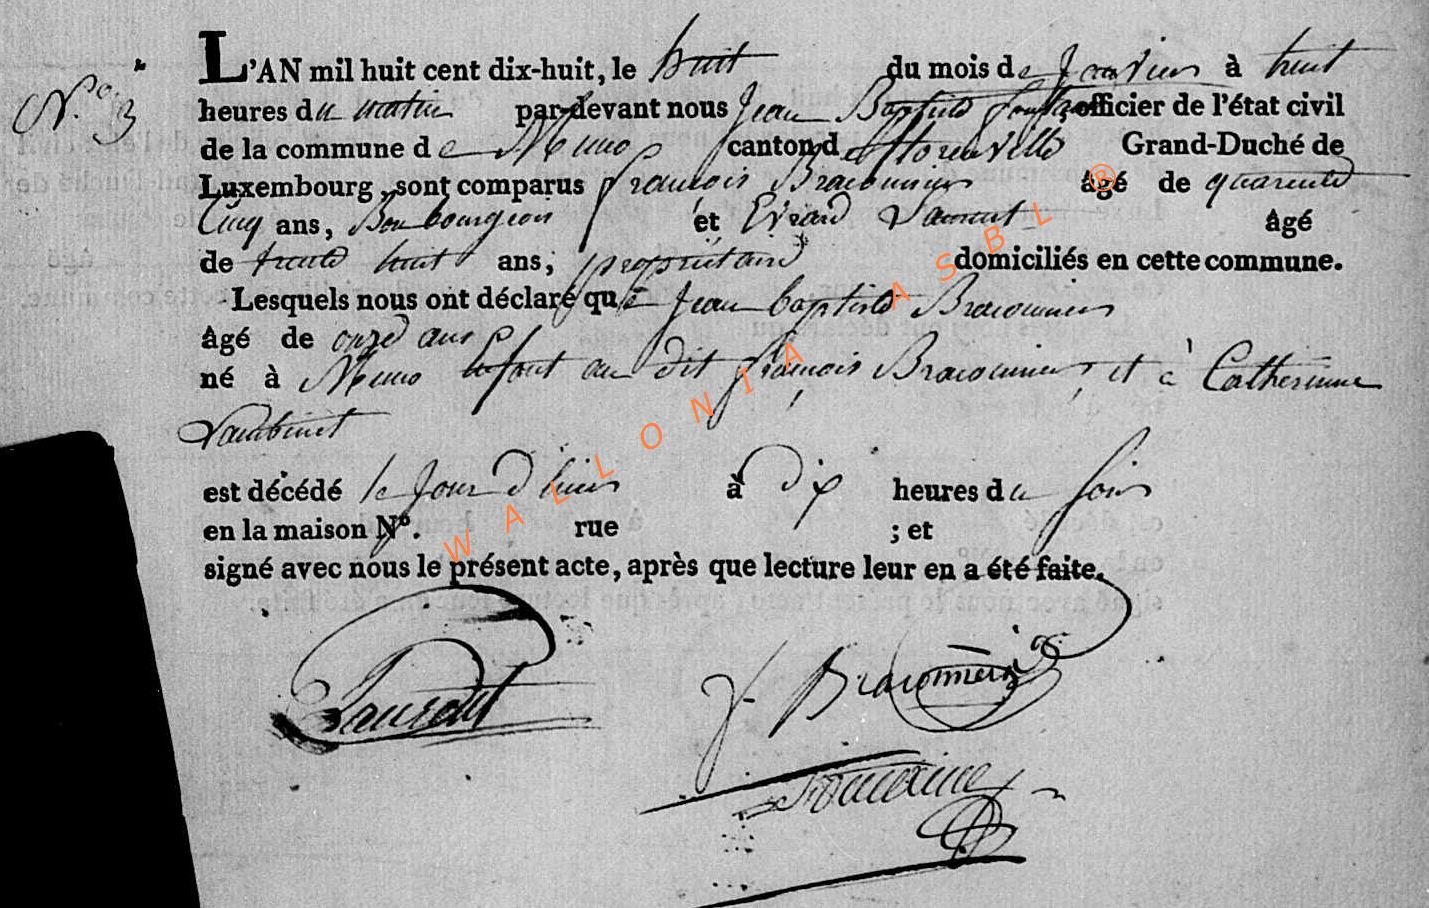 N.° 3
L'AN mil huit cent dix-huit, le huit du mois de Janvier à huit
heures du matin par-devant nous Jean Baptiste officier de l'état civil
de la commune de Muno canton de florenville Grand-Duché de
Luxembourg, sont comparus françois Braconnier âgé de quarente
Cinq ans, Bon bourgeois et Evrard Laurent âgé
de trente huit ans, propriétaire domiciliés en cette commune.
Lesquels nous ont déclaré que Jean baptiste Braconnier
âgé de onze ans
né à Muno enfant au dit françois Braconnier, et à Catherinne
Lambinet
est décédé le Jour d'hier à dix heures du soir
en la maison N°. rue ; et
signé avec nous le présent acte, après que lecture leur en a été faite.
Laurent
f. Braconnier
WALLONIA ASBL ®